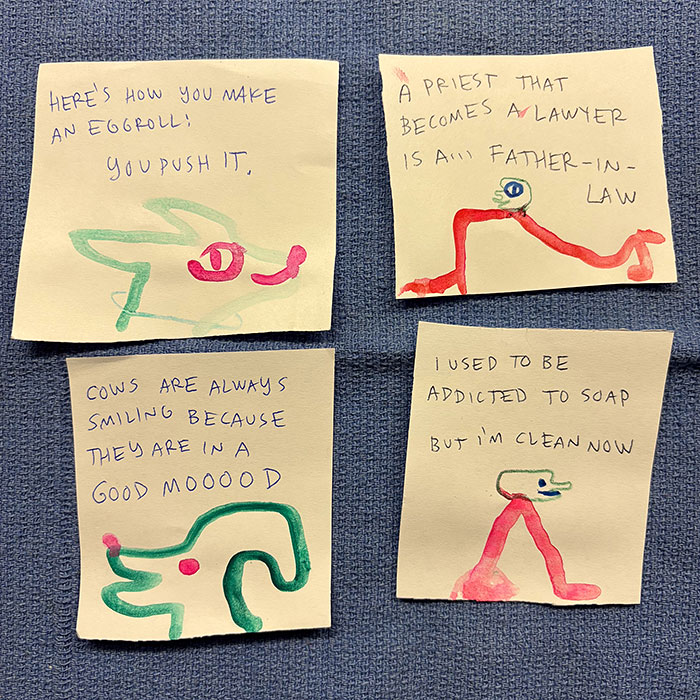 HERE'S HOW YOU MAKE
AN EGGROLL:
YOU PUSH IT.
A PRIEST THAT
BECOMES A LAWYER
IS A... FATHER-IN-
LAW
COWS ARE ALWAYS
SMILING BECAUSE
THEY ARE IN A
GOOD MOOOOD
I USED TO BE
ADDICTED TO SOAP
BUT I'M CLEAN NOW